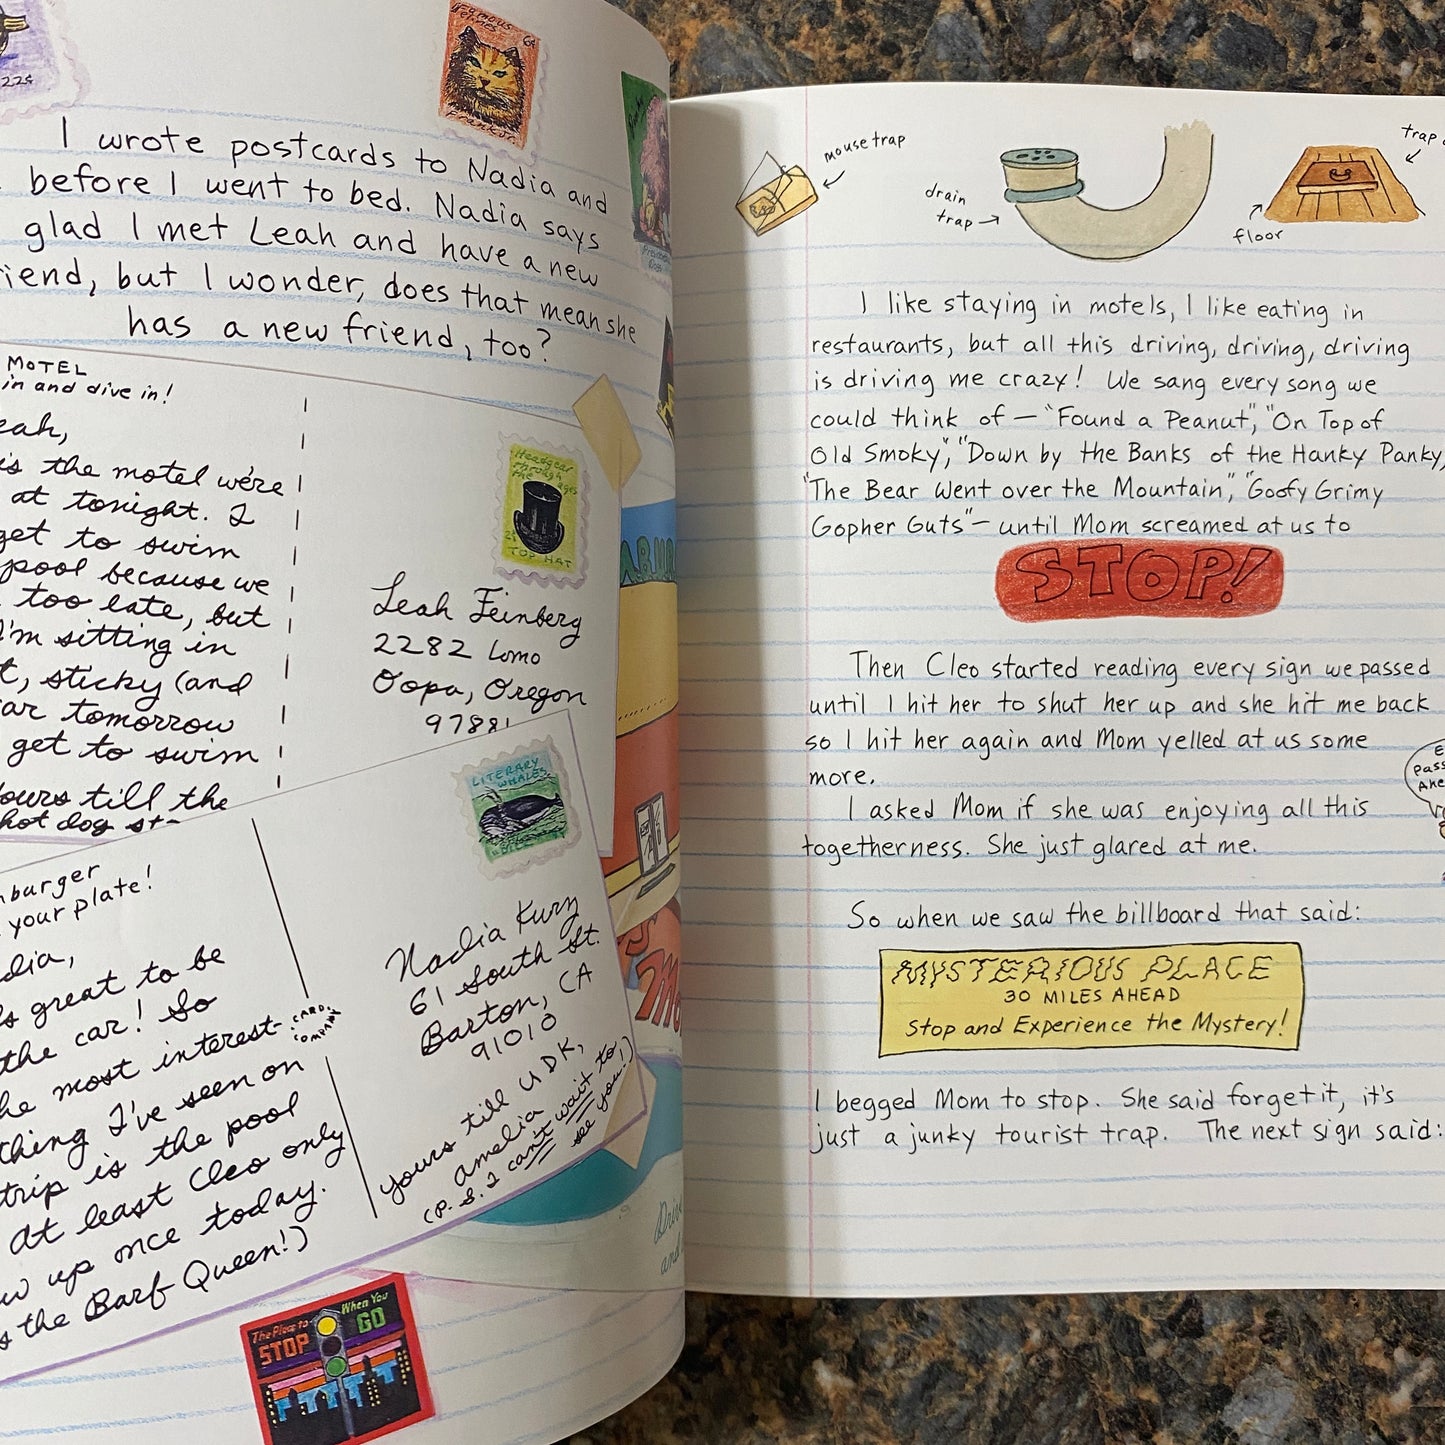 22¢
FAMOUS
Felines
6¢
Franklin
I wrote postcards to Nadia and
before I went to bed. Nadia says
glad I met Leah and have a new
iend, but I wonder, does that mean she
has a new friend, too?
MOTEL
in and dive in!
eah,
is the motel we're
at tonight. I
get to swim
pool because we
too late, but
I'm sitting in
t, sticky (and
ar tomorrow
get to swim
Yours till the
hot dog st
Headgear
through
the ages
2¢
TOP HAT
Leah Feinberg
2282 Lomo
Oopa, Oregon
97881
nburger
your plate!
dia,
's great to be
the car! So
he most interest-
thing I've seen on
trip is the pool
At least Cleo only
w up once today.
s the Barf Queen!)
CARDS
COMPANY
LITERARY
WHALES
Nadia Kurz
61 South St.
Barton, CA
91010
yours till UDK,
amelia
(P.S. I can't wait to
see you!)
The Place to
STOP
When You
GO
mouse trap
drain
trap
trap
floor
I like staying in motels, I like eating in
restaurants, but all this driving, driving, driving
is driving me crazy! We sang every song we
could think of — "Found a Peanut", "On Top of
Old Smoky", "Down by the Banks of the Hanky Panky,
"The Bear Went over the Mountain", "Goofy Grimy
Gopher Guts" — until Mom screamed at us to
STOP!
Then Cleo started reading every sign we passed
until I hit her to shut her up and she hit me back
so I hit her again and Mom yelled at us some
more.
I asked Mom if she was enjoying all this
togetherness. She just glared at me.
So when we saw the billboard that said:
MYSTERIOUS PLACE
30 MILES AHEAD
Stop and Experience the Mystery!
I begged Mom to stop. She said forget it, it's
just a junky tourist trap. The next sign said: